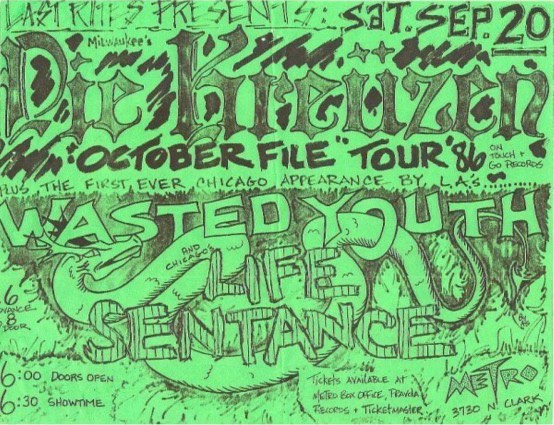 LAST RITES PRESENTS: SAT. SEP. 20
Milwaukee's
Die Kreüzen
"OCTOBER FILE" TOUR '86
ON TOUCH + GO RECORDS
PLUS THE FIRST EVER CHICAGO APPEARANCE BY L.A.'S..........
WASTED YOUTH
AND CHICAGO'S
LIFE
SENTANCE
6:00 DOORS OPEN
6:30 SHOWTIME
TICKETS AVAILABLE AT:
METRO BOX OFFICE,
RECORDS + TICKETMASTER.
METRO
3730 N CLARK